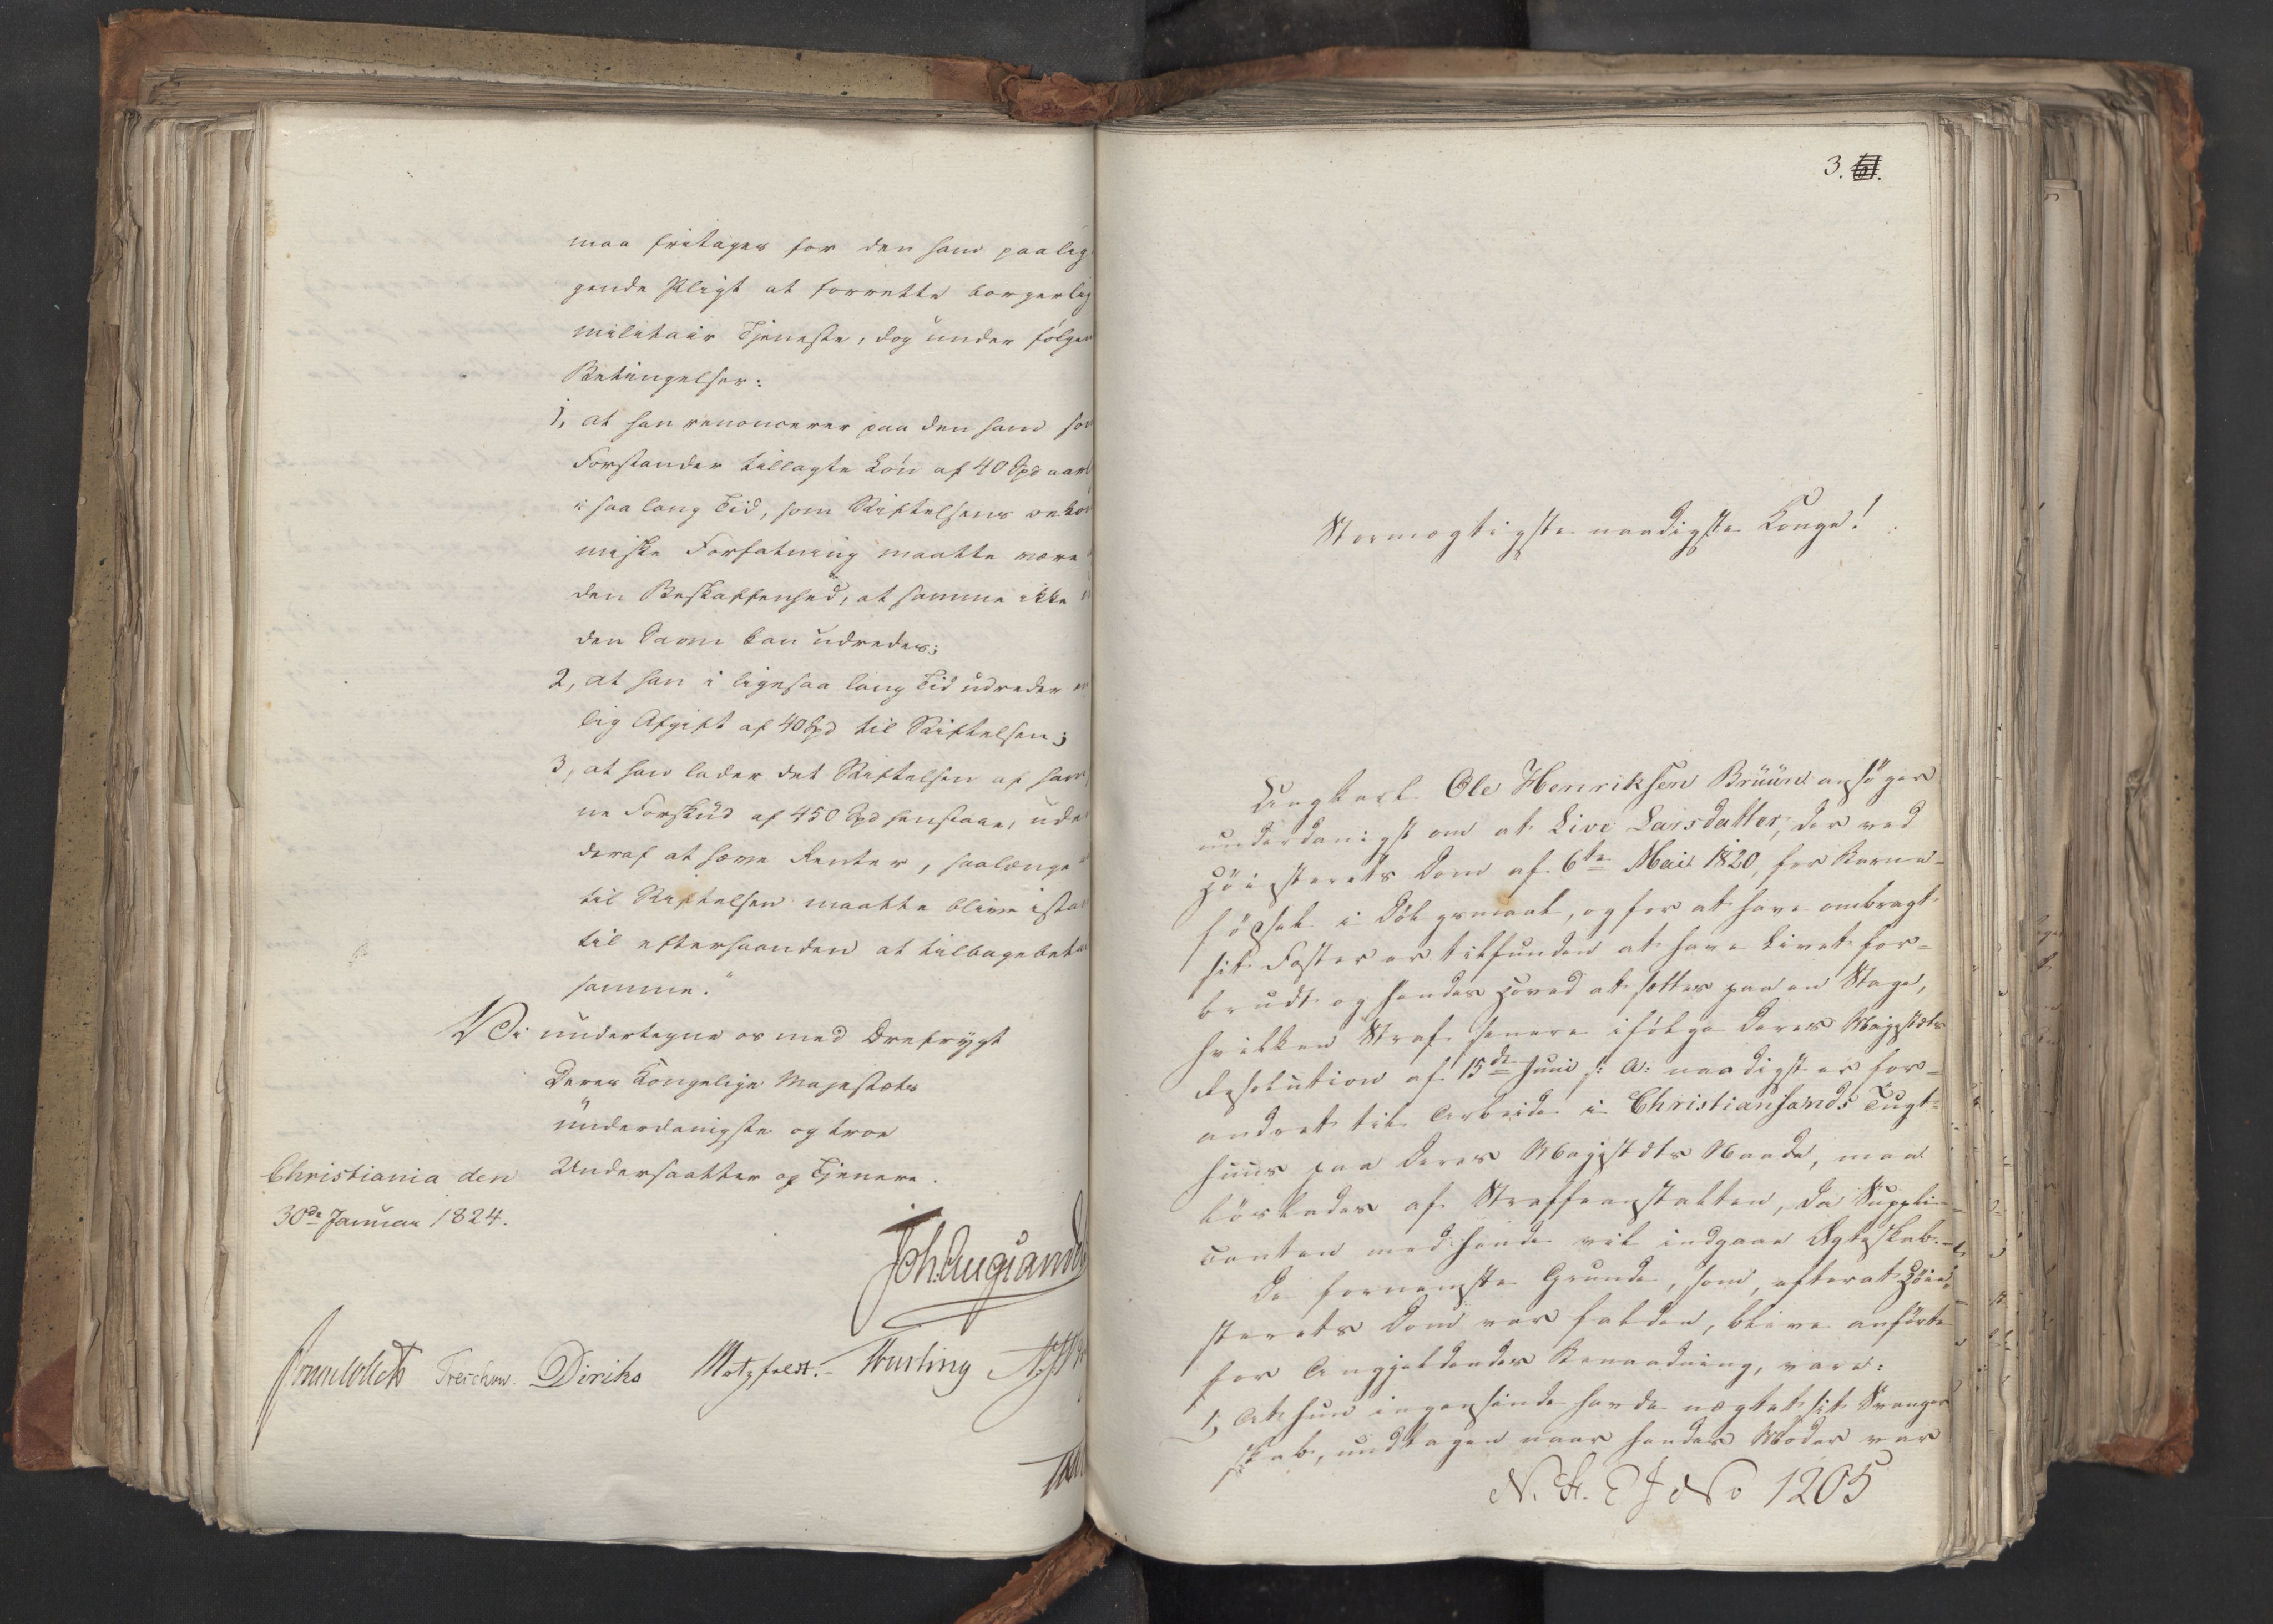 maa fritages for den ham paalig
gende Pligt at forrette borgerlig
militair Tjeneste, dog under følgen
Betingelser:
1, at han renoncerer paa den ham som
Forstander tillagte Løn af 40 Spd aarl
i saa lang Tid, som Stiftelsens oekono
miske Forfatning maatte være
den Beskaffenhed, at samme ikke
den Savn kan udredes;
2, at han i ligesaa lang Tid udreder
lig Afgift af 40 Spd til Stiftelsen;
3, at han lader det Stiftelsen af ham
ne Forskud af 450 Spd henstaae, ude
deraf at hæve Renter, saalænge
til Stiftelsen maatte blive istan
til efterhaanden at tilbagebeta
samme."
Vi undertegne os med Ærefrygt
Deres Kongelige Majestæts
underdanigste og troe
Undersaatter og Tjenere.
Christiania den
30de Januar 1824.
Joh. Aug. Sande
Sommerhielm Treschow. Diriks Motzfeldt. Fasting
3.
Stormægtigste naadigste Konge!
Ungkarl Ole Henriksen Bruun ansøger
underdanigst om at Live Larsdatter, der ved
Høiesterets Dom af 6te Mai 1820, for Barne-
fødsel i Dølgsmaal, og for at have ombragt
sit Foster er tilfunden at have Livet for-
brudt og hendes Hoved at sættes paa en Stage,
hvilken Straf senere ifølge Deres Majestæts
Resolution af 15de Juni s: A: naadigst er for-
andret til Arbeide i Christiansands Tugt-
huus paa Deres Majestæts Naade, maa
løslades af Straffeanstalten, da Suppli-
canten med hende vil indgaae Ægteskab.-
De fornemste Grunde, som, efterat Høie-
sterets Dom var falden, bleve anførte
for Angjeldendes Benaadning, vare:
1, At hun ingensinde havde nægtet sit Svanger
skab, undtagen naar hendes Moder var
N. R. C J No 1205